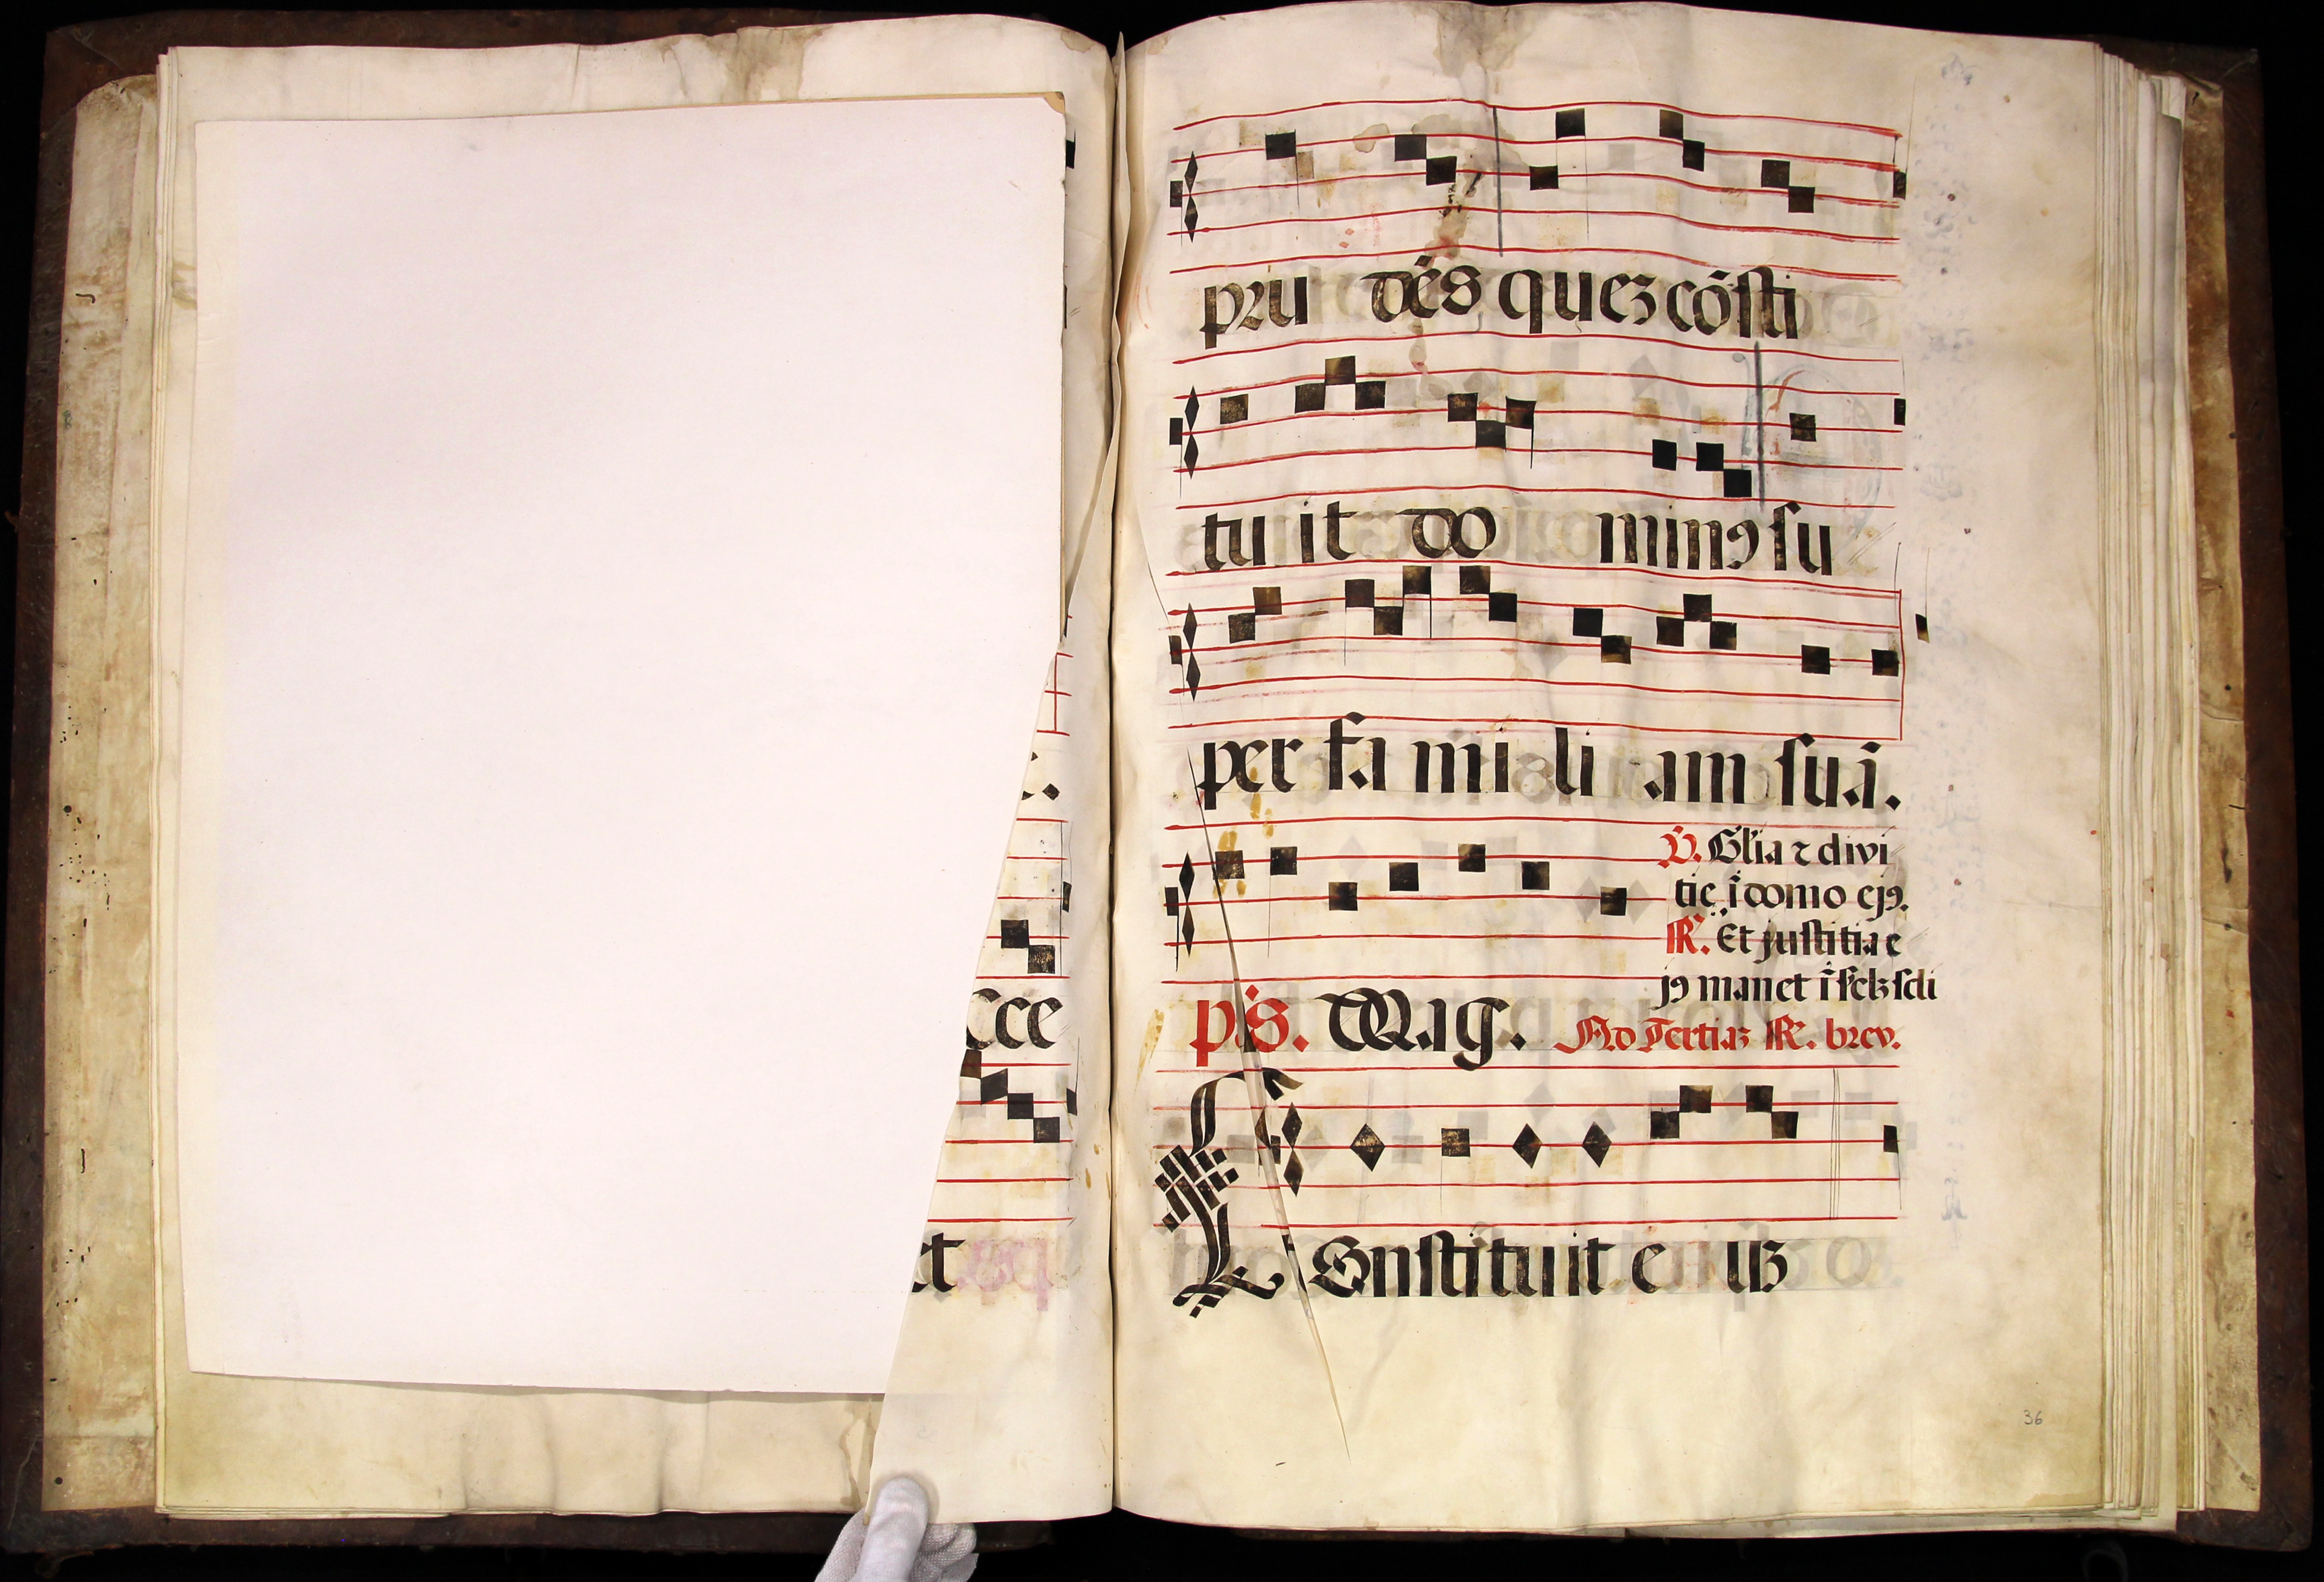 c.
cce
et
pru dēs quez cōsti
tu it do minꝯ su
per fa mi li am suā.
V. Glīa ⁊ divi
tie ī domo ejꝯ.
R. Et justitia e
jꝯ manet ī sclꝫ scli
ps. Mag. Ad Tertiaꝫ R. brev.
COnstituit e uꝫ
36